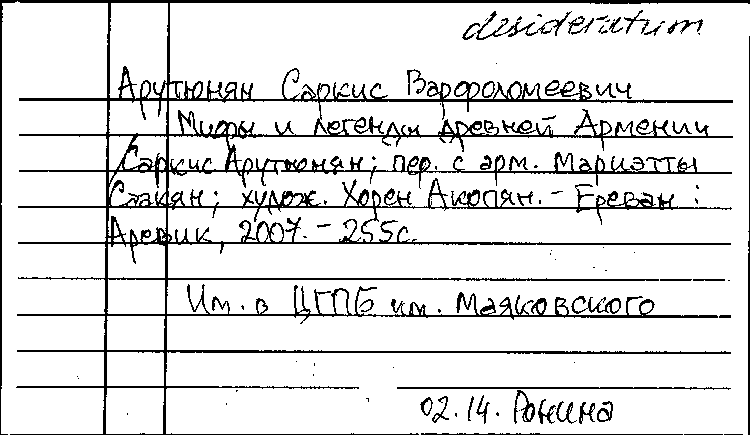 desideratum
Арутюнян Саркис Варфоломеевич
Мифы и легенды древней Армении
/Саркис Арутюнян; пер. с арм. Мариэтты
Саакян; худож. Хорен Акопян. – Ереван :
Аревик, 2007. – 255с.
Им. в ЦГПБ им. Маяковского
02.14. Ронина